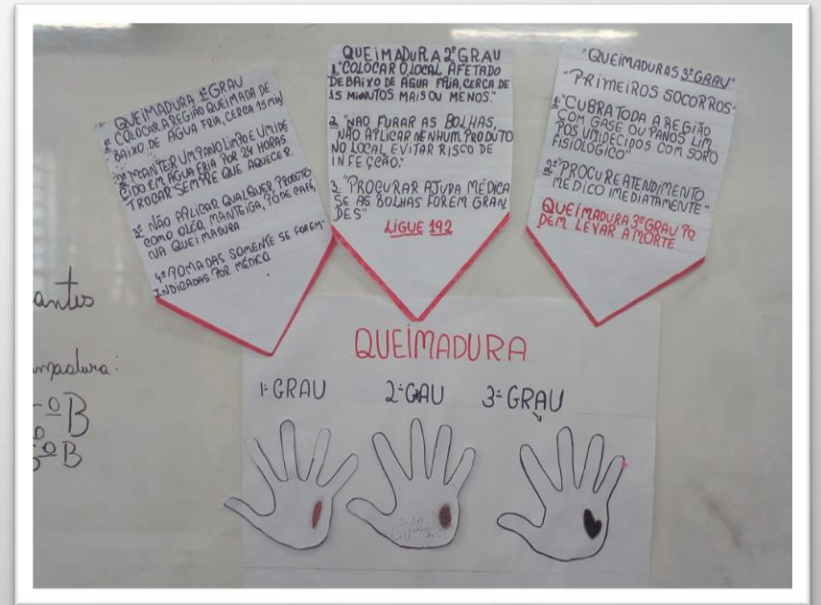 QUEIMADURA 1º GRAU
1º COLOCAR A REGIÃO QUEIMADA DE
BAIXO DE ÁGUA FRIA, CERCA 15 MIN
2º MANTER UM PANO LIMPO E UMIDE
CIDO EM ÁGUA FRIA POR 24 HORAS
TROCAR SEMPRE QUE AQUECER
3º NÃO APLICAR QUALQUER PRODUTO
COMO OLEO, MANTEIGA, PÓ DE CAFÉ,
NA QUEIMADURA
4º POMADAS SOMENTE SE FOREM
INDICADAS POR MÉDICO
QUEIMADURA 2º GRAU
1º "COLOCAR O LOCAL AFETADO
DEBAIXO DE ÁGUA FRIA, CERCA DE
15 MINUTOS MAIS OU MENOS."
2 "NAO FURAR AS BOLHAS,
NÃO APLICAR NENHUM PRODUTO
NO LOCAL EVITAR RISCO DE
INFECÇÃO."
3 "PROCURAR AJUDA MÉDICA
SE AS BOLHAS FOREM GRAN
DES"
LIGUE 192
"QUEIMADURAS 3º GRAU"
"PRIMEIROS SOCORROS"
1º "CUBRA TODA A REGIÃO
COM GASE OU PANOS LIM
POS UMIDECIDOS COM SORO
FISIOLOGICO"
2º "PROCURE ATENDIMENTO
MÉDICO IMEDIATAMENTE"
QUEIMADURA 3º GRAU PO
DEM LEVAR A MORTE
antes
madura:
ºB
ºB
QUEIMADURA
1º GRAU 2º GAU 3º GRAU